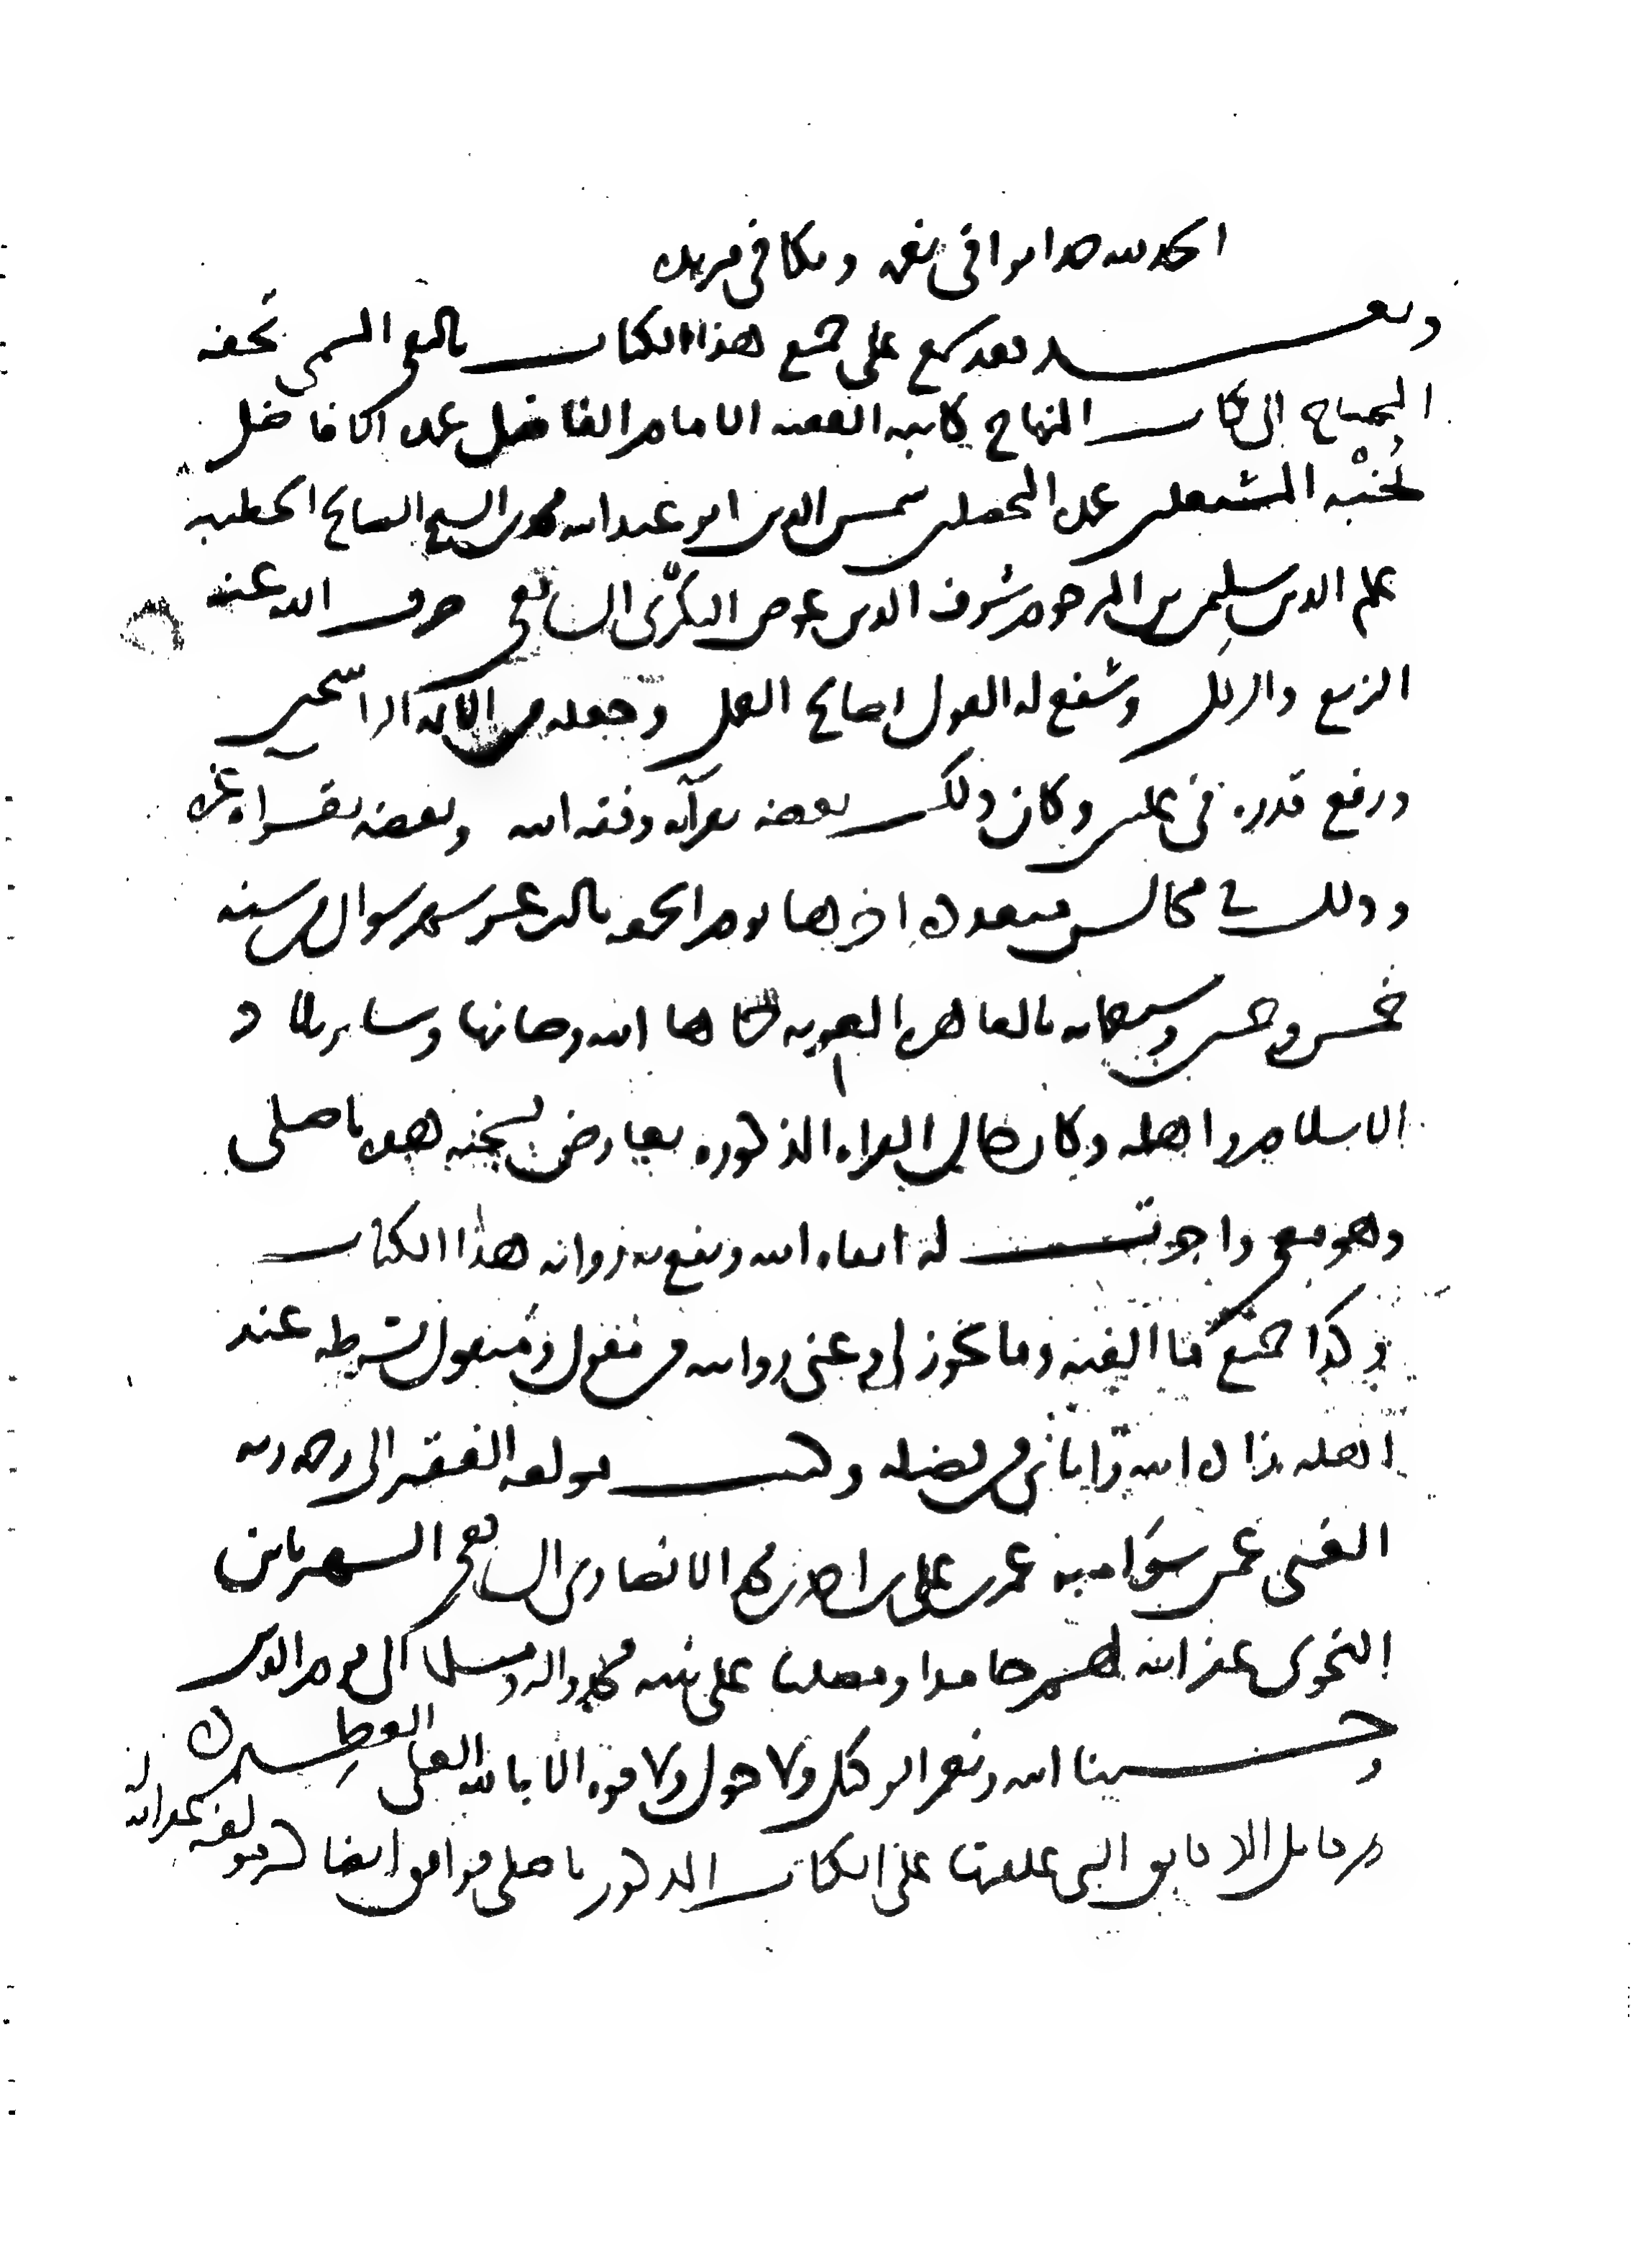 الحمد لله حمدا يوافي نعمه ويكافي مزيده
وبعد فقد سمع علي جميع هذا الكتاب تاليفي المسمى تحفة
المحتاج الى كتاب المنهاج كاتبه الفقيه الامام الفاضل عمدة الافاضل
نخبة المشتغلين عمدة المحصلين شمس الدين ابو عبد الله محمد بن الشيخ الصالح الخطيب
علم الدين سليمن بن المرحوم شرف الدين عوض البكري الشافعي صرف الله عنه
الزيغ والزلل وشفع له القول بصالح العمل وجعله من الائمة الراسخين
ورفع قدره في عليين وكان ذلك بعضه بقراته وفقه الله وبعضه بقراة غيره
وذلك في مجالس متعددة اخرها يوم الجمعة ثالث عشر شهر شوال من سنة
خمس وخمسين وسبعمائة بالقاهرة المعزية حماها الله وصانها وسائر بلاد
الاسلام واهله وكان حال القراة المذكورة يعارض نسخته هذه باصلي
وهو معي واجزت له ابقاه الله ونفع به رواية هذا الكتاب
وكذا جميع ما الفته وما يجوز لي وعني روايته من مقول ومنقول بشرطه عند
اهله زادنا الله واياه من فضله وكتب مولفه الفقير الى رحمة ربه
الغني عمن سواه عمر بن علي بن احمد بن محمد الانصاري الشافعي الشهير بابن
النحوي غفر الله لهم حامدا ومصليا على نبيه محمد واله ومسلما الى يوم الدين
وحسبنا الله ونعم الوكيل ولا حول ولا قوة الا بالله العلي العظيم
وقابل الدقائق التي علقتها على الكتاب المذكور باصلي فوافق ايضا كتبه مولفه غفر الله له